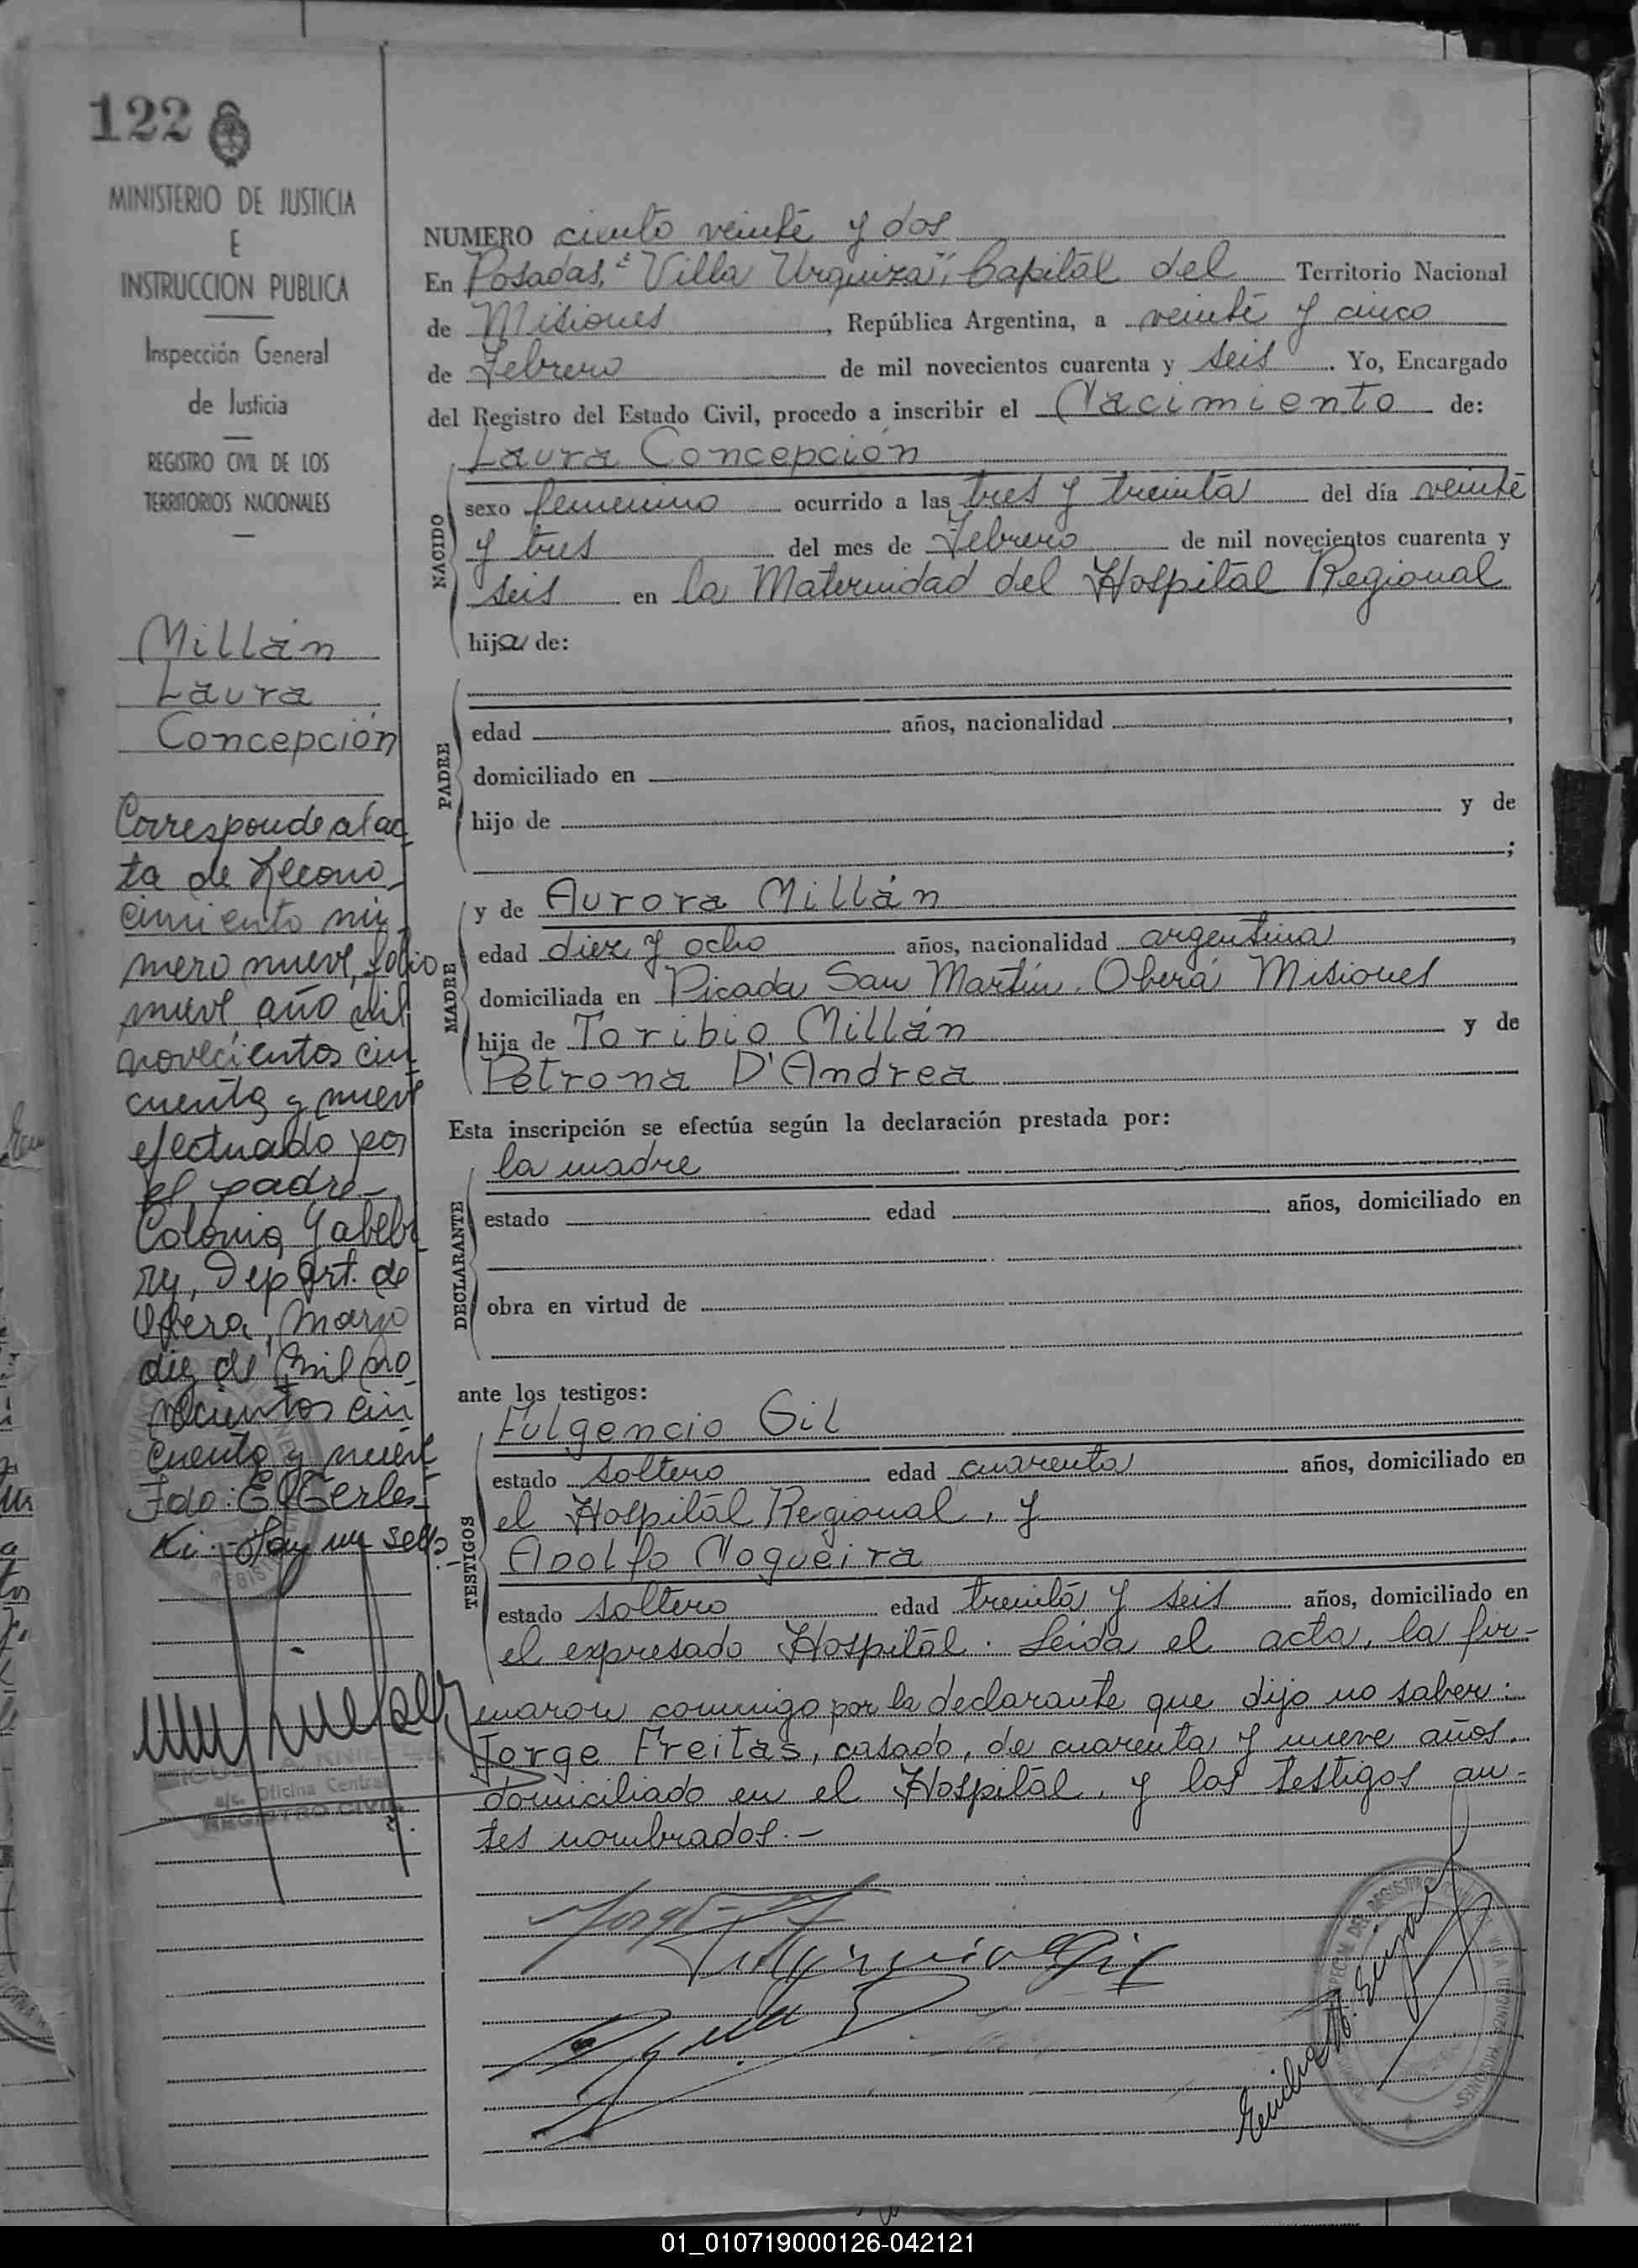 122
MINISTERIO DE JUSTICIA
E
INSTRUCCION PUBLICA
Inspección General
de Justicia
REGISTRO CIVIL DE LOS
TERRITORIOS NACIONALES
Millán
Laura
Concepción
Corresponde al ac
ta de Recono
cimiento nú
mero nueve, folio
nueve, año mil
novecientos cin
cuenta y nueve
efectuado por
el padre-
Colonia Yabebi
ry, Depart. de
Obera, Marzo
diez de mil no
vecientos cin
cuenta y nueve
Fdo: E.
ki.- Hay un sello
Oficina Central
REGISTRO CIVIL
NUMERO ciento veinte y dos
En Posadas, "Villa Urquiza", Capital del Territorio Nacional
de Misiones, República Argentina, a veinte y cinco
de Febrero de mil novecientos cuarenta y seis. Yo, Encargado
del Registro del Estado Civil, procedo a inscribir el Nacimiento de:
Laura Concepción
NACIDO
sexo femenino ocurrido a las tres y treinta del día veinte
y tres del mes de Febrero de mil novecientos cuarenta y
seis en la Maternidad del Hospital Regional
hija de:
PADRE
edad años, nacionalidad ,
domiciliado en
hijo de y de
;
MADRE
y de Aurora Millán
edad diez y ocho años, nacionalidad argentina,
domiciliada en Picada San Martín, Oberá Misiones
hija de Toribio Millán y de
Petrona D'Andrea
Esta inscripción se efectúa según la declaración prestada por:
DECLARANTE
la madre
estado edad años, domiciliado en
obra en virtud de
ante los testigos:
TESTIGOS
Fulgencio Gil
estado soltero edad cuarenta años, domiciliado en
el Hospital Regional, y
Adolfo Nogueira
estado soltero edad treinta y seis años, domiciliado en
el expresado Hospital. Leída el acta, la fir-
maron conmigo por la declarante que dijo no saber:
Jorge Freitas, casado, de cuarenta y nueve años,
domiciliado en el Hospital, y los testigos an-
tes nombrados.-
Jorge
Fulgencio Gil
Emilia
01_010719000126-042121